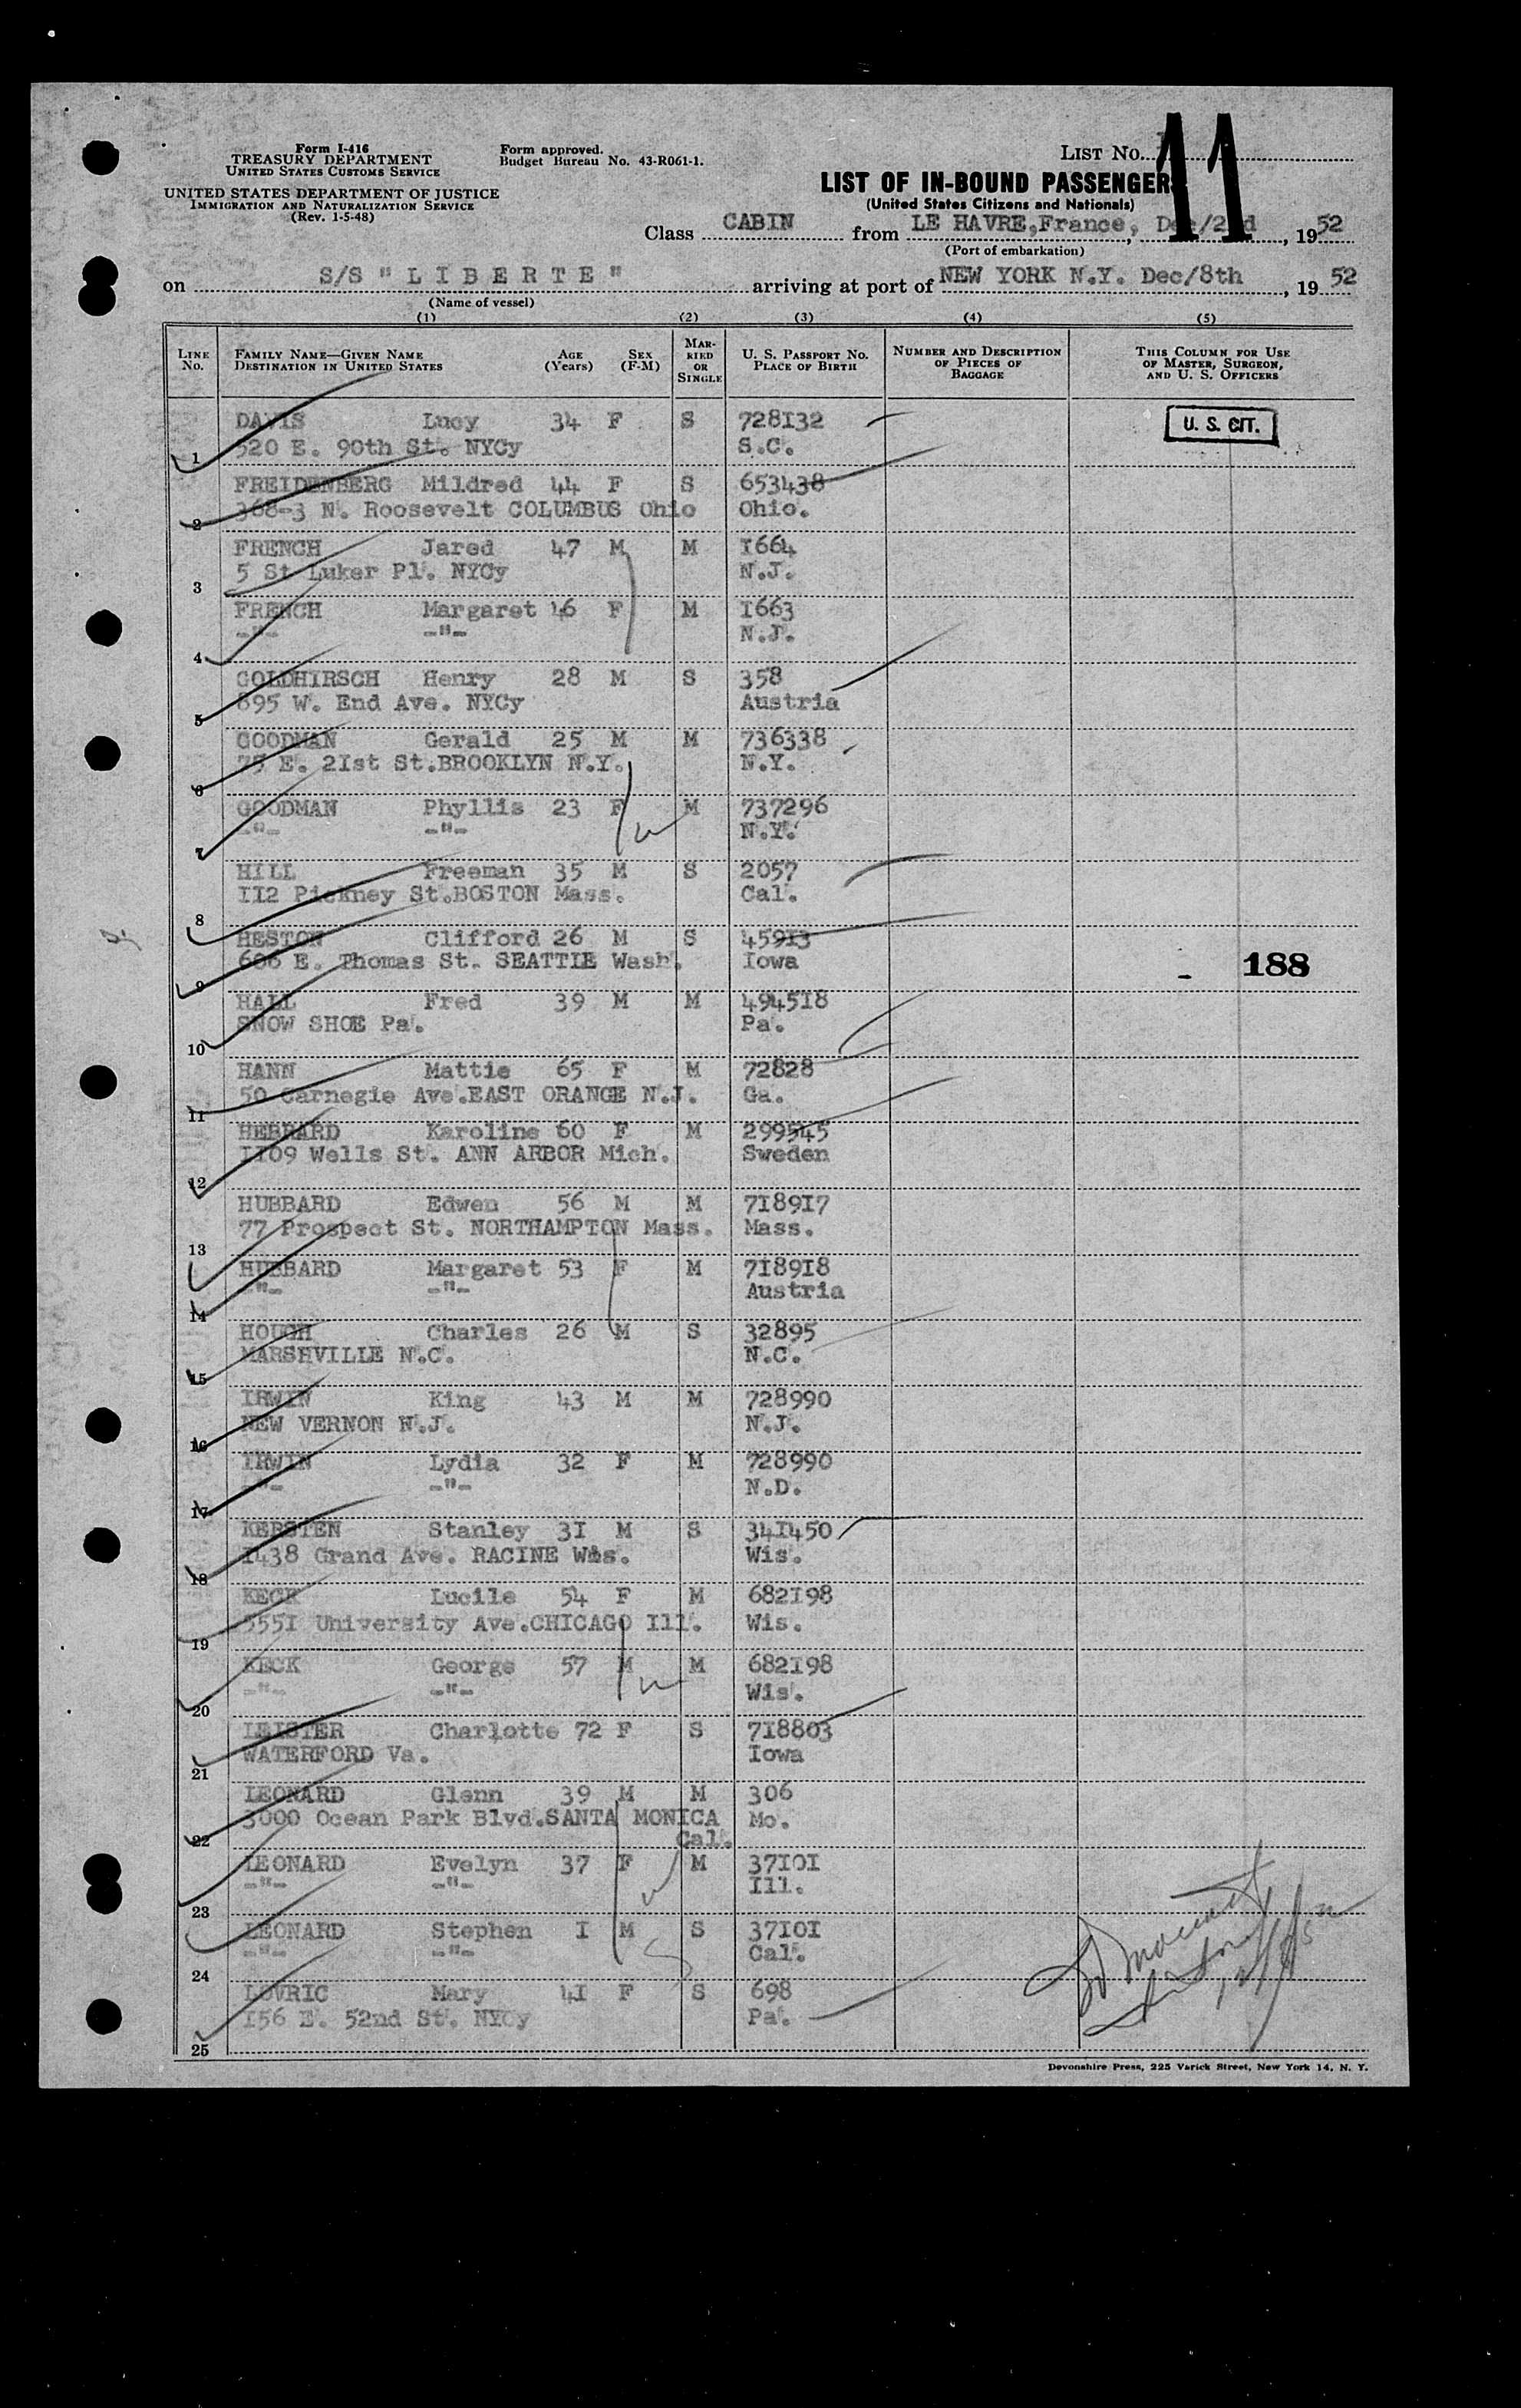 Form I-416
TREASURY DEPARTMENT
UNITED STATES CUSTOMS SERVICE
UNITED STATES DEPARTMENT OF JUSTICE
IMMIGRATION AND NATURALIZATION SERVICE
(Rev. 1-5-48)
Form approved.
Budget Bureau No. 43-R061-1.
LIST No. 11
LIST OF IN-BOUND PASSENGERS
(United States Citizens and Nationals)
Class CABIN from LE HAVRE,France, Dec/2nd, 1952
(Port of embarkation)
on S/S "LIBERTE" arriving at port of NEW YORK N.Y. Dec/8th, 1952
(Name of vessel)
(1) (2) (3) (4) (5)
LINE No. FAMILY NAME—GIVEN NAME DESTINATION IN UNITED STATES AGE (Years) SEX (F-M) MARRIED OR SINGLE U. S. PASSPORT NO. PLACE OF BIRTH NUMBER AND DESCRIPTION OF PIECES OF BAGGAGE THIS COLUMN FOR USE OF MASTER, SURGEON, AND U. S. OFFICERS
DAVIS Lucy 34 F S 728I32 U. S. CIT.
1 520 E. 90th St. NYCy S.C.
FREIDENBERG Mildred 44 F S 653438
2 368-3 N. Roosevelt COLUMBUS Ohio Ohio.
FRENCH Jared 47 M M I664
3 5 St Luker Pl. NYCy N.J.
FRENCH Margaret 46 F M I663
4 -"- -"- N.J.
GOLDHIRSCH Henry 28 M S 358
5 695 W. End Ave. NYCy Austria
GOODMAN Gerald 25 M M 736338
6 75 E. 2Ist St.BROOKLYN N.Y. N.Y.
GOODMAN Phyllis 23 F M 737296
7 -"- -"- N.Y.
HILL Freeman 35 M S 2057
8 II2 Pickney St.BOSTON Mass. Cal.
HESTON Clifford 26 M S 459I3
9 606 E. Thomas St. SEATTIE Wash. Iowa - 188
HALL Fred 39 M M 4945I8
10 SNOW SHOE Pa. Pa.
HANN Mattie 65 F M 72828
11 50 Carnegie Ave.EAST ORANGE N.J. Ga.
HEBBARD Karoline 60 F M 299545
12 II09 Wells St. ANN ARBOR Mich. Sweden
HUBBARD Edwen 56 M M 7I89I7
13 77 Prospect St. NORTHAMPTON Mass. Mass.
HUBBARD Margaret 53 F M 7I89I8
14 -"- -"- Austria
HOUGH Charles 26 M S 32895
15 MARSHVILLE N.C. N.C.
IRWIN King 43 M M 728990
16 NEW VERNON N.J. N.J.
IRWIN Lydia 32 F M 728990
17 -"- -"- N.D.
KERSTEN Stanley 3I M S 34I450
18 I438 Grand Ave. RACINE Wis. Wis.
KECK Lucile 54 F M 682I98
19 555I University Ave.CHICAGO Ill. Wis.
KECK George 57 M M 682I98
20 -"- -"- Wis.
LEISTER Charlotte 72 F S 7I8803
21 WATERFORD Va. Iowa
LEONARD Glenn 39 M M 306
22 3000 Ocean Park Blvd.SANTA MONICA Cal. Mo.
LEONARD Evelyn 37 F M 37I0I
23 -"- -"- Ill.
LEONARD Stephen I M S 37I0I
24 -"- -"- Cal.
LOVRIC Mary 4I F S 698
25 I56 E. 52nd St. NYCy Pa.
Devonshire Press, 225 Varick Street, New York 14, N. Y.